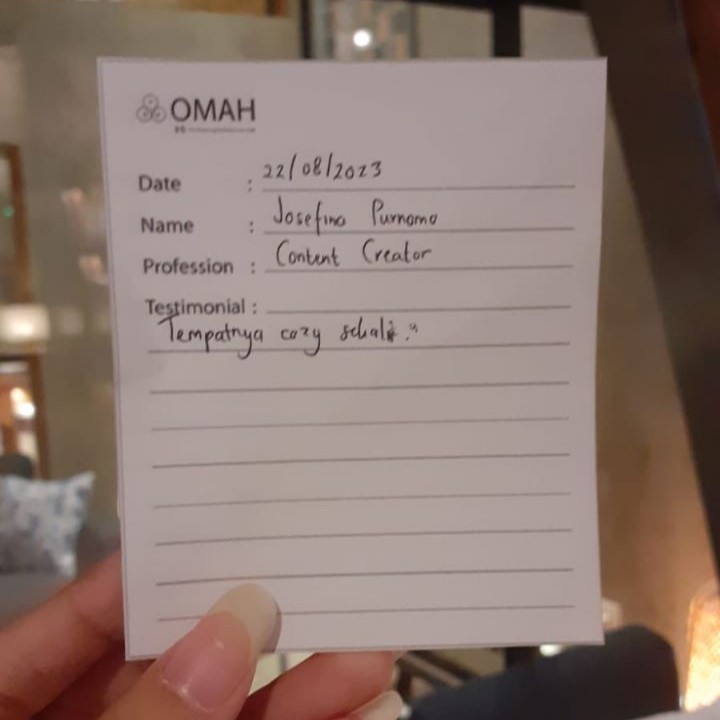 OMAH
Date : 22/08/2023
Name : Josefina Purnomo
Profession : Content Creator
Testimonial :
Tempatnya cozy sekali."